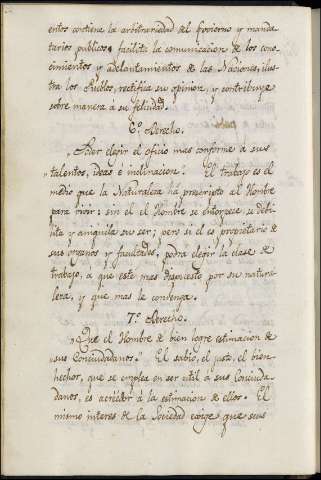 entos contiene la arbitrariedad del Govierno y manda-
tarios publicos, facilita la comunicacion de los cono-
cimientos y adelantamientos de las Naciones, ilus-
tra los Pueblos, rectifica su opinion, y contribuye
sobre manera á su felicidad.
6.º Derecho.
„Poder elegir el oficio mas conforme á sus
„talentos, ideas é inclinacion." El trabajo es el
medio que la Naturaleza há prescripto al Hombre
para vivir: sin el el Hombre se entorpece, se debi-
lita y aniquila su ser; pero si el es propietario de
sus organos y facultades, podra elegir la clase de
trabajo, a que esté mas dispuesto por su natura-
leza, y que mas le convenga.
7.º Derecho.
„Que el Hombre de bien logre estimacion de
„sus Conciudadanos." El sabio, el justo, el bien-
hechor, que se emplea en ser util á sus Conciuda-
danos, es acrehedor á la estimacion de ellos. El
mismo interes de la Sociedad exige que sus